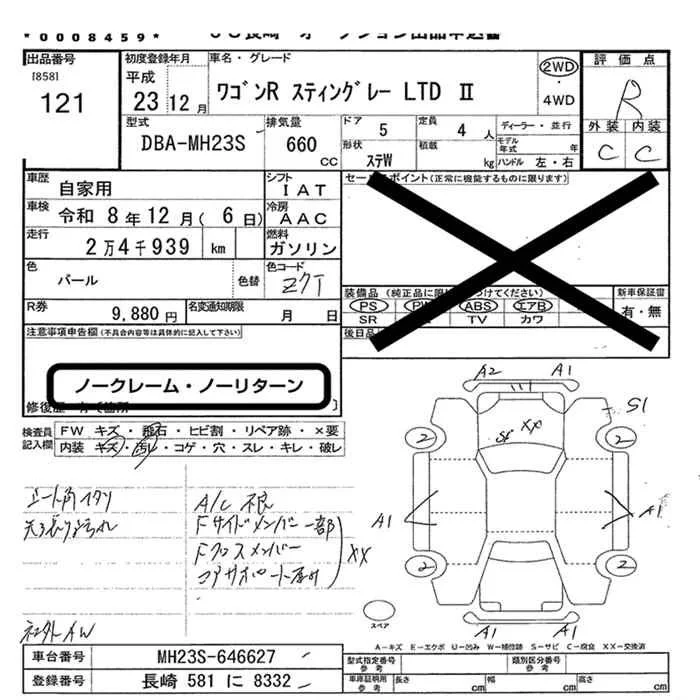 *0008459*
出品番号
[858]
121
初度登録年月
平成
23 12 月
車名・グレード
ワゴンR スティングレー LTD Ⅱ
2WD
・
4WD
評価点
R
外装 内装
C C
型式
DBA-MH23S
排気量
660
cc
ドア
5
定員
4 人
形状
ステW
積載
kg
ディーラー・並行
モデル年式 年
ハンドル 左・右
車歴
自家用
シフト
IAT
車検
令和 8年12月( 6日)
冷房
AAC
走行
2万4千939 km
燃料
ガソリン
色
パール
色替
色コード
ZQT
R券
9,880円
名変通知期限
月 日
セールスポイント(正常に機能するものに限ります)
装備品
PS ABS エアB
SR TV カワ
新車保証書
有・無
後日品
注意事項申告欄(不具合内容等は具体的に記入して下さい)
ノークレーム・ノーリターン
検査員
記入欄
FW キズ・飛石・ヒビ割・リペア跡・×要
内装 キズ・汚レ・コゲ・穴・スレ・キレ・破レ
A/C 不良
Fサイドメンバー一部
Fクロスメンバー
コアサポート
XX
社外AW
A2 A1
S1
XX
2 2
A1 A1
2 2
A1 A1
スペア
A-キズ E-エクボ U-凹み W-補修跡 S-サビ C-腐食 XX-交換済
車台番号
MH23S-646627
登録番号
長崎 581 に 8332
型式指定番号
参考
類別区分番号
参考
車庫証明用
参考
長さ cm
幅 cm
高さ cm